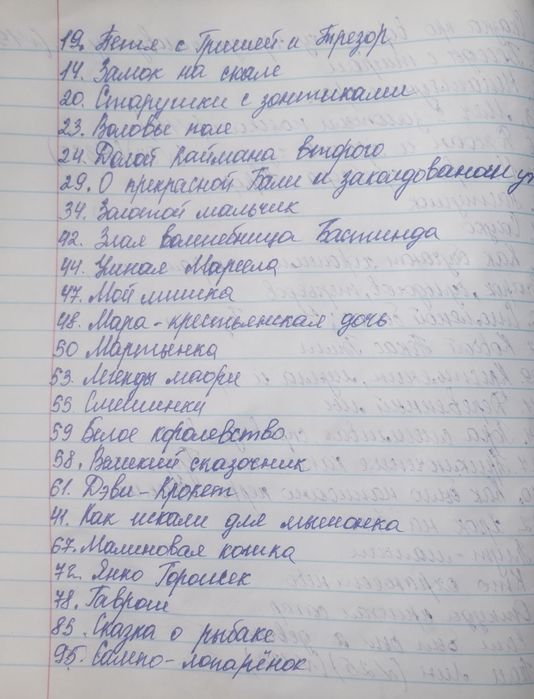 19. Петя с Гришей и Трезор
14. Замок на скале
20. Старушки с зонтиками
23. Воловье поле
24. Долой Каймана второго
29. О прекрасной Гали и заколдованном
34. Золотой мальчик
42. Злая волшебница Бастинда
44. Чикая Марсела
47. Мой мишка
48. Мара-крестьянская дочь
50 Мартынка
53. Легенды маори
55. Смешинки
59 Белое королевство
58. Великий сказочник
61. Дэви-Крокет
41. Как искали для мышонка
67. Малиновая кошка
72. Янко Горошек
78. Гаврош
85. Сказка о рыбаке
95. Сампо-лопарёнок